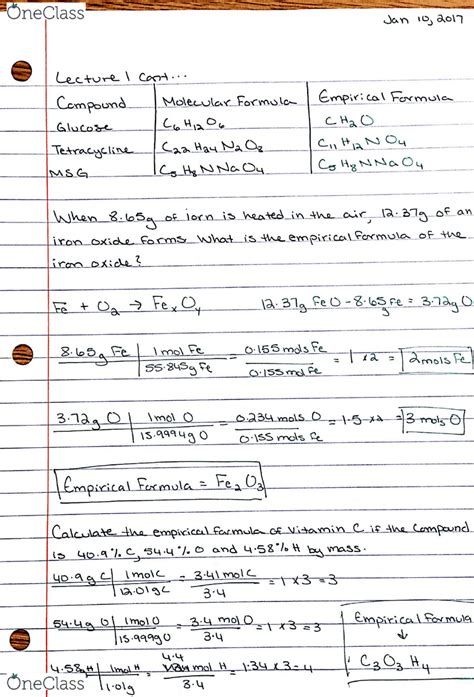 OneClass
Jan 10, 2017
Lecture 1 Cont...
Compound Molecular Formula Empirical Formula
Glucose C6 H12 O6 CH2O
Tetracycline C22 H24 N2 O8 C11 H12 N O4
MSG C5 H8 N Na O4 C5 H8 N Na O4
When 8.65g of iorn is heated in the air, 12.37g of an
iron oxide forms. What is the empirical formula of the
iron oxide?
Fe + O2 → FexOy 12.37g FeO - 8.65g Fe = 3.72g O
8.65g Fe | 1mol Fe / 55.845g Fe = 0.155mols Fe / 0.155mol Fe = 1 x2 = 2mols Fe
3.72g O | 1mol O / 15.9994g O = 0.234 mols O / 0.155 mols Fe = 1.5 x2 = 3 mols O
Empirical Formula = Fe2 O3
Calculate the empirical formula of vitamin C if the compound
is 40.9% C, 54.4% O and 4.58% H by mass.
40.9g C | 1molC / 12.01gC = 3.41molC / 3.4 = 1 x3 = 3
54.4g O | 1molO / 15.999gO = 3.4 molO / 3.4 = 1 x3 = 3
Empirical Formula
↓
C3 O3 H4
4.58gH | 1molH / 1.01g = 4.4 mol H / 3.4 = 1.34 x3 = 4
OneClass